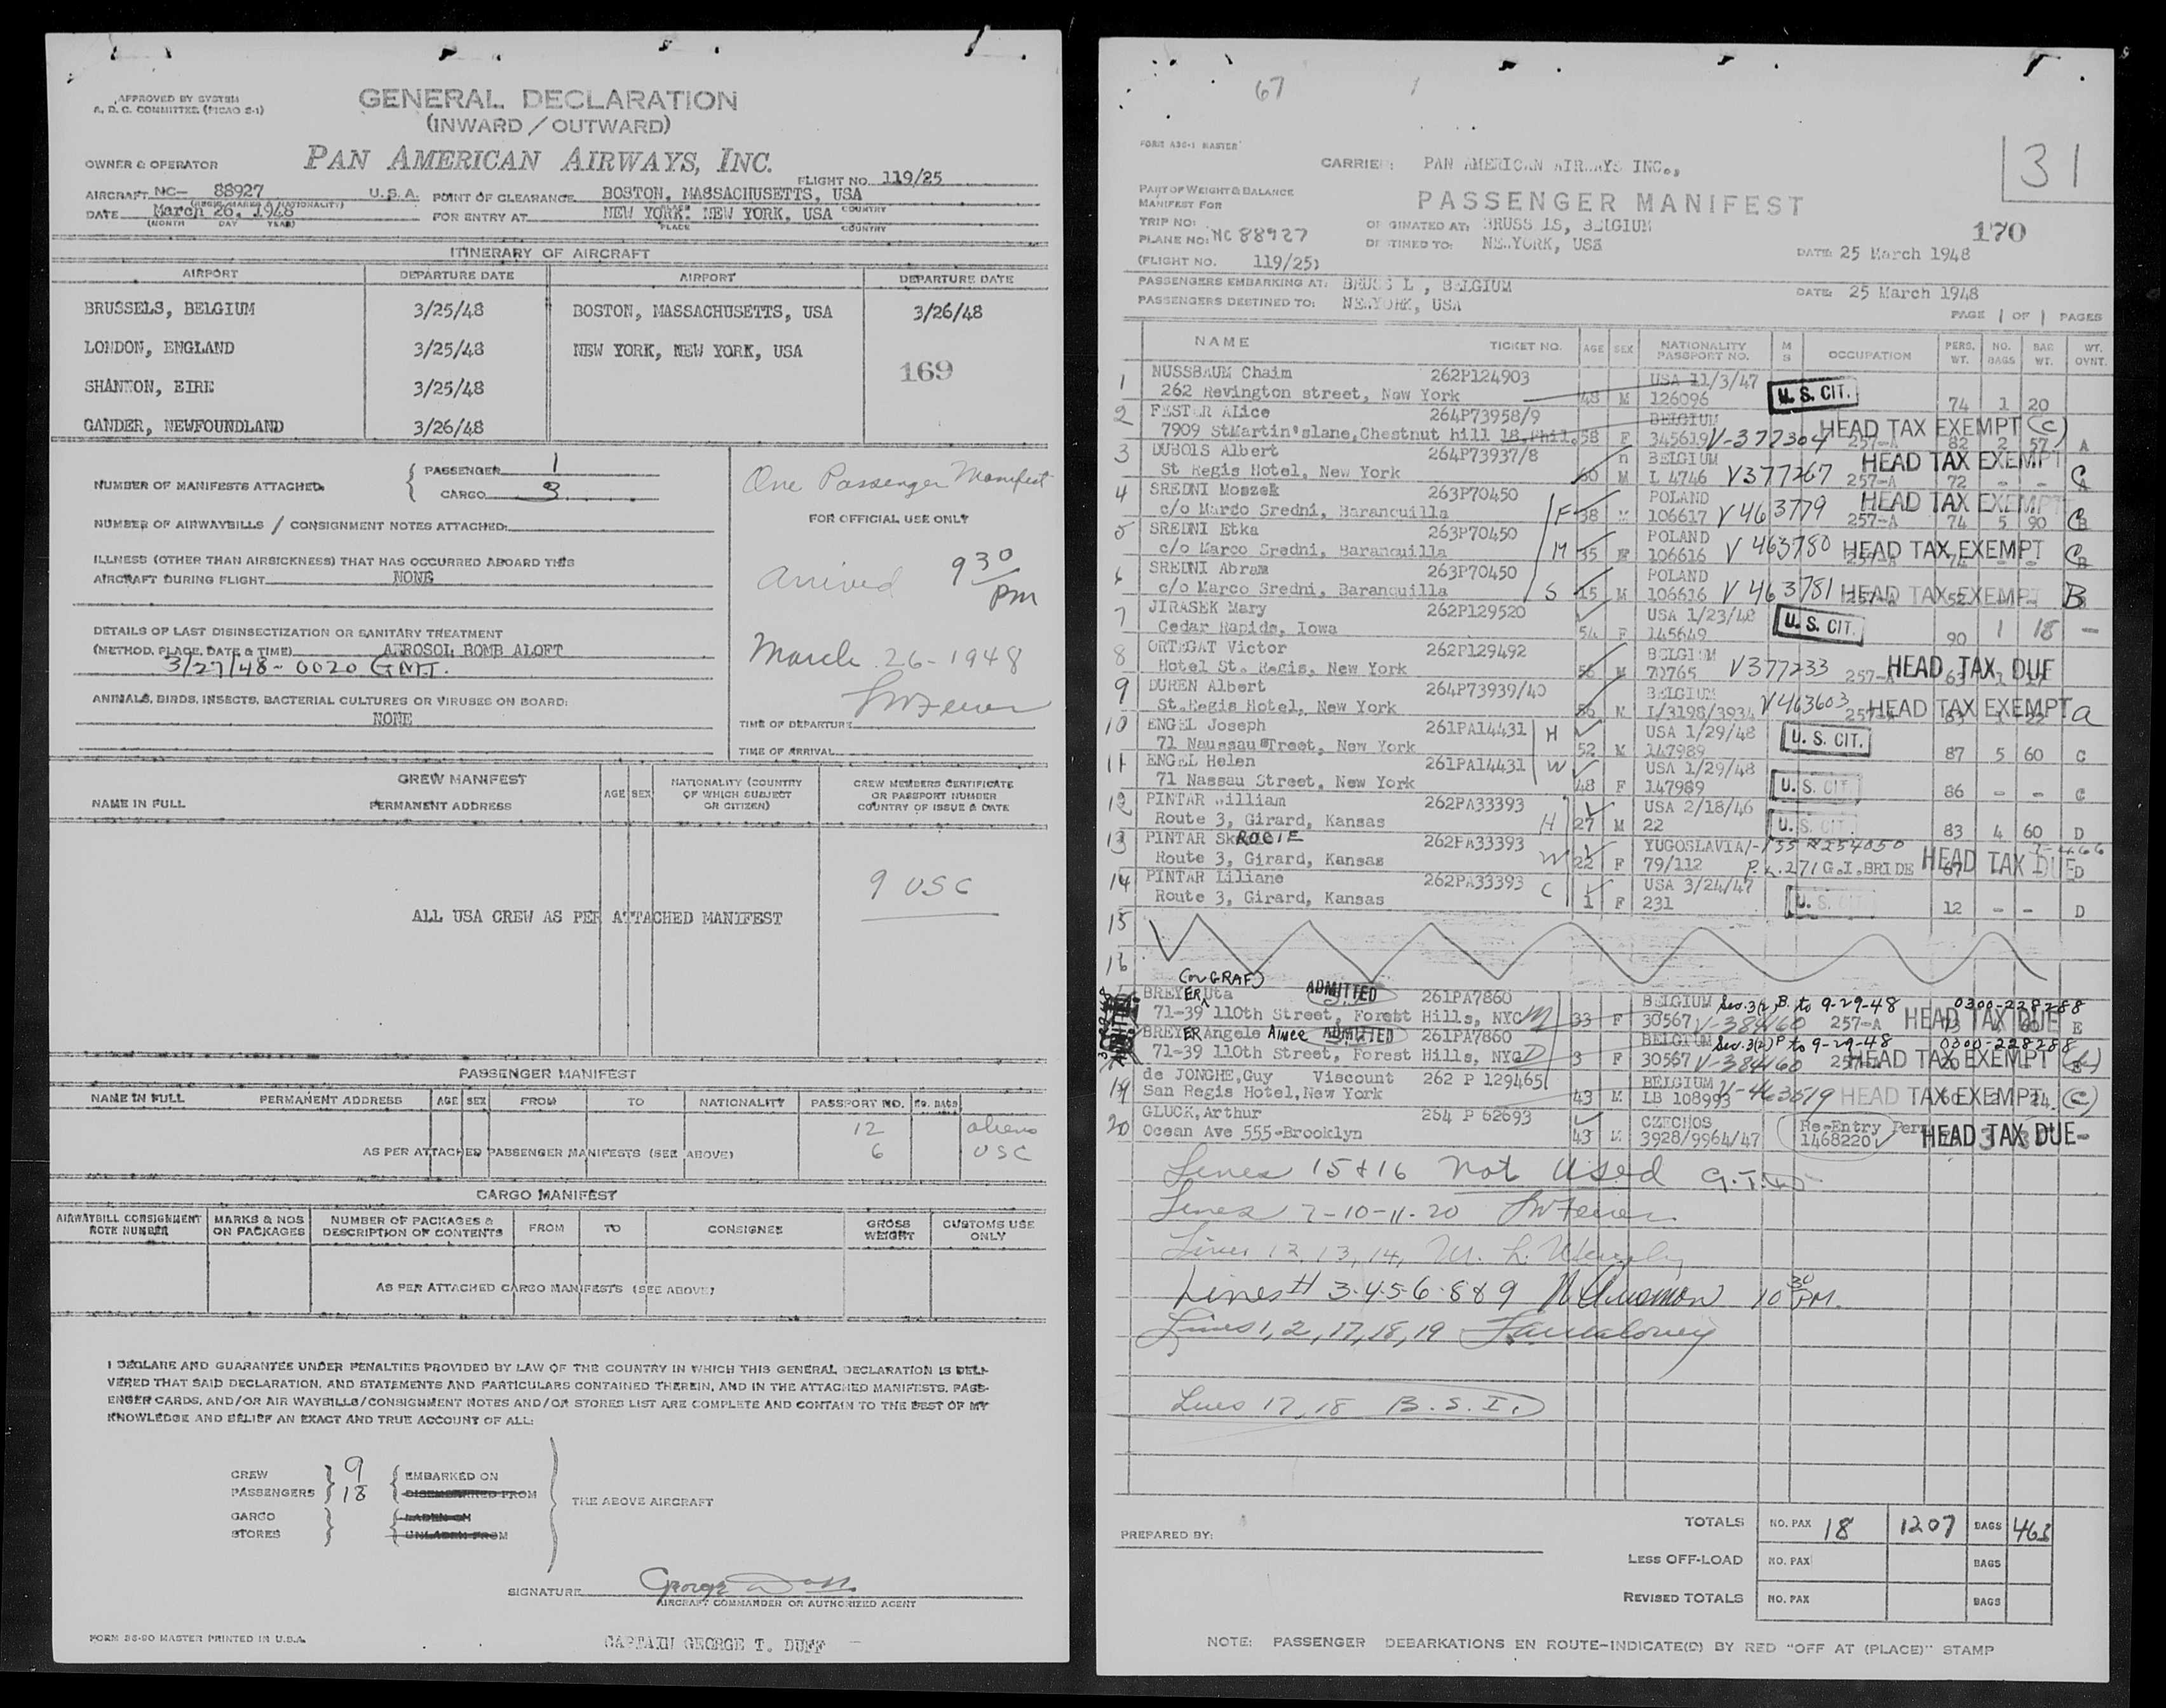 APPROVED BY SYSTEM
A. D. C. COMMITTEE (PICAO 2-1)
GENERAL DECLARATION
(INWARD / OUTWARD)
OWNER & OPERATOR PAN AMERICAN AIRWAYS, INC.
FLIGHT NO. 119/25
AIRCRAFT NC- 88927 U.S.A. POINT OF CLEARANCE BOSTON, MASSACHUSETTS, USA
(REGIS. MARKS & NATIONALITY) PLACE COUNTRY
DATE March 26, 1948 FOR ENTRY AT NEW YORK, NEW YORK, USA
(MONTH DAY YEAR) PLACE COUNTRY
ITINERARY OF AIRCRAFT
AIRPORT DEPARTURE DATE AIRPORT DEPARTURE DATE
BRUSSELS, BELGIUM 3/25/48 BOSTON, MASSACHUSETTS, USA 3/26/48
LONDON, ENGLAND 3/25/48 NEW YORK, NEW YORK, USA
169
SHANNON, EIRE 3/25/48
GANDER, NEWFOUNDLAND 3/26/48
NUMBER OF MANIFESTS ATTACHED: PASSENGER 1
CARGO 3
NUMBER OF AIRWAYBILLS / CONSIGNMENT NOTES ATTACHED:
ILLNESS (OTHER THAN AIRSICKNESS) THAT HAS OCCURRED ABOARD THIS
AIRCRAFT DURING FLIGHT NONE
DETAILS OF LAST DISINSECTIZATION OR SANITARY TREATMENT
(METHOD, PLACE, DATE & TIME) AEROSOL BOMB ALOFT
3/27/48 - 0020 GMT.
ANIMALS, BIRDS, INSECTS, BACTERIAL CULTURES OR VIRUSES ON BOARD:
NONE
One Passenger Manifest
FOR OFFICIAL USE ONLY
Arrived 9 30 PM
March 26-1948
TIME OF DEPARTURE
TIME OF ARRIVAL
CREW MANIFEST
NAME IN FULL PERMANENT ADDRESS AGE SEX NATIONALITY (COUNTRY OF WHICH SUBJECT OR CITIZEN) CREW MEMBERS CERTIFICATE OR PASSPORT NUMBER COUNTRY OF ISSUE & DATE
9 USC
ALL USA CREW AS PER ATTACHED MANIFEST
PASSENGER MANIFEST
NAME IN FULL PERMANENT ADDRESS AGE SEX FROM TO NATIONALITY PASSPORT NO. NO. BAGS
12 aliens
AS PER ATTACHED PASSENGER MANIFESTS (SEE ABOVE) 6 USC
CARGO MANIFEST
AIRWAYBILL CONSIGNMENT NOTE NUMBER MARKS & NOS ON PACKAGES NUMBER OF PACKAGES & DESCRIPTION OF CONTENTS FROM TO CONSIGNEE GROSS WEIGHT CUSTOMS USE ONLY
AS PER ATTACHED CARGO MANIFESTS (SEE ABOVE)
I DECLARE AND GUARANTEE UNDER PENALTIES PROVIDED BY LAW OF THE COUNTRY IN WHICH THIS GENERAL DECLARATION IS DELI-
VERED THAT SAID DECLARATION, AND STATEMENTS AND PARTICULARS CONTAINED THEREIN, AND IN THE ATTACHED MANIFESTS, PASS-
ENGER CARDS, AND/OR AIR WAYBILLS/CONSIGNMENT NOTES AND/OR STORES LIST ARE COMPLETE AND CONTAIN TO THE BEST OF MY
KNOWLEDGE AND BELIEF AN EXACT AND TRUE ACCOUNT OF ALL:
CREW 9 EMBARKED ON
PASSENGERS 18 DISEMBARKED FROM
THE ABOVE AIRCRAFT
CARGO LADEN ON
STORES UNLADEN FROM
SIGNATURE George Duff
AIRCRAFT COMMANDER OR AUTHORIZED AGENT
FORM 36-90 MASTER PRINTED IN U.S.A.
CAPTAIN GEORGE T. DUFF
67 1
FORM A30-1 MASTER
31
CARRIER: PAN AMERICAN AIRWAYS INC.,
PART OF WEIGHT & BALANCE
MANIFEST FOR
PASSENGER MANIFEST
TRIP NO: ORIGINATED AT: BRUSS LS, BELGIUM 170
PLANE NO: NC 88927 DESTINED TO: NEWYORK, USA
(FLIGHT NO. 119/25) DATE: 25 March 1948
PASSENGERS EMBARKING AT: BRUSS L , BELGIUM DATE: 25 March 1948
PASSENGERS DESTINED TO: NEWYORK, USA
PAGE 1 OF 1 PAGES
NAME TICKET NO. AGE SEX NATIONALITY PASSPORT NO. M S OCCUPATION PERS. WT. NO. BAGS BAG WT. WT. CYNT.
1 NUSSBAUM Chaim 262P124903 USA 11/3/47 U. S. CIT.
262 Revington street, New York 48 M 126096 74 1 20
2 FESTER Alice 264P73958/9 BELGIUM HEAD TAX EXEMPT (C)
7909 StMartin'slane, Chestnut hill 18, Phil. 58 F 345619 V-377304 257-A 82 2 57 A
3 DUBOIS Albert 264P73937/8 BELGIUM HEAD TAX EXEMPT
St Regis Hotel, New York 60 M L 4746 V377267 257-A 72 - - C
4 SREDNI Moszek 263P70450 POLAND HEAD TAX EXEMPT
c/o Margo Sredni, Baranquilla F 38 M 106617 V 463779 257-A 74 5 90 C
5 SREDNI Etka 263P70450 POLAND
c/o Marco Sredni, Baranquilla M 35 F 106616 V 463780 HEAD TAX EXEMPT C
6 SREDNI Abram 263P70450 POLAND
c/o Marco Sredni, Baranquilla S 15 M 106616 V 463781 HEAD TAX EXEMPT B
7 JIRASEK Mary 262P129520 USA 1/23/48 U. S. CIT.
Cedar Rapids, Iowa 54 F 145649 90 1 18 -
8 ORTEGAT Victor 262P129492 BELGIUM
Hotel St. Regis, New York 56 M 70765 V377233 257-A HEAD TAX DUE
9 DUREN Albert 264P73939/40 BELGIUM V463603
St.Regis Hotel, New York M I/3198/3934 257-A HEAD TAX EXEMPT a
10 ENGEL Joseph 261PA14431 H USA 1/29/48 U. S. CIT.
71 Naussau STreet, New York 52 M 147989 87 5 60 C
11 ENGEL Helen 261PA14431 W USA 1/29/48
71 Nassau Street, New York 48 F 147989 U. S. CIT. 86 - - C
12 PINTAR William 262PA33393 USA 2/18/46
Route 3, Girard, Kansas H 27 M 22 U. S. CIT. 83 4 60 D
13 PINTAR ROCIE 262PA33393 YUGOSLAVIA
Route 3, Girard, Kansas W 22 F 79/112 P.L. 271 G.I. BRIDE HEAD TAX DUE D
14 PINTAR Liliane 262PA33393 C USA 3/24/47
Route 3, Girard, Kansas 1 F 231 U. S. CIT. 12 - - D
15
16
(or GRAF)
BREYER Uta ADMITTED 261PA7860 BELGIUM Sec. 3(2) B. to 9-29-48 0300-228288
71-39 110th Street, Forest Hills, NYC M 33 F 30567 V-384160 257-A HEAD TAX DUE E
BREYER Angele Aimee ADMITTED 261PA7860 BELGIUM Sec. 3(2) P to 9-29-48 0300-228288
71-39 110th Street, Forest Hills, NYC D 3 F 30567 V-384160 HEAD TAX EXEMPT
19 de JONGHE,Guy Viscount 262 P 129465 BELGIUM
San Regis Hotel,New York 43 M LB 108993 V-463519 HEAD TAX EXEMPT 24 (C)
20 GLUCK,Arthur 254 P 62693 CZECHOS Re-Entry Perm
Ocean Ave 555-Brooklyn 43 M 3928/9964/47 1468220 HEAD TAX DUE-
Lines 15 & 16 not used
Lines 7-10-11-20
Lines 12, 13, 14,
Lines # 3-4-5-6-8 & 9 10 30 PM.
Lines 1, 2, 17, 18, 19
Lines 17, 18 B.S.I.
TOTALS NO. PAX 18 1207 BAGS 463
PREPARED BY:
LESS OFF-LOAD NO. PAX BAGS
REVISED TOTALS NO. PAX BAGS
NOTE: PASSENGER DEBARKATIONS EN ROUTE-INDICATE(D) BY RED "OFF AT (PLACE)" STAMP